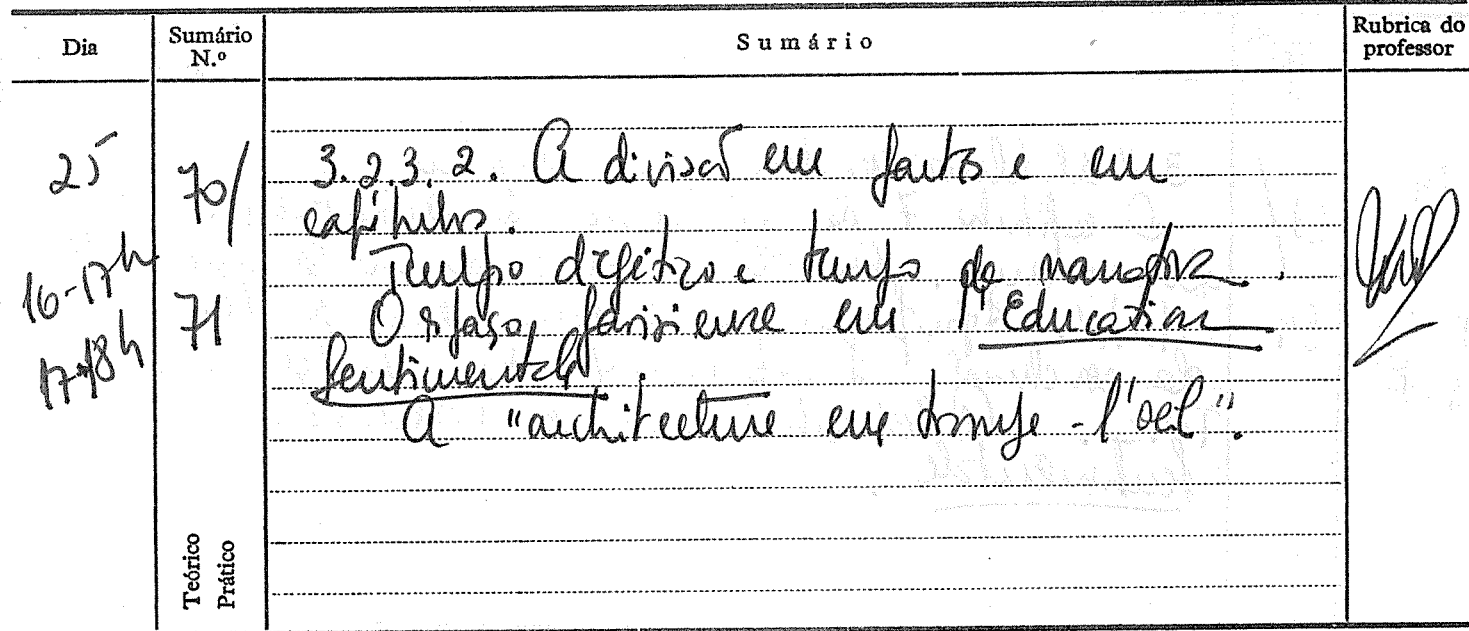 Dia
Sumário N.º
Sumário
Rubrica do professor
25
16-17h
17-18h
70/
71
3.2.3.2. A divisão em partes e em
capítulos.
Tempo diegético e tempo da narrativa.
O espaço parisiense em l'Education
Sentimentale.
A "architecture en trompe-l'oeil".
Teórico
Prático